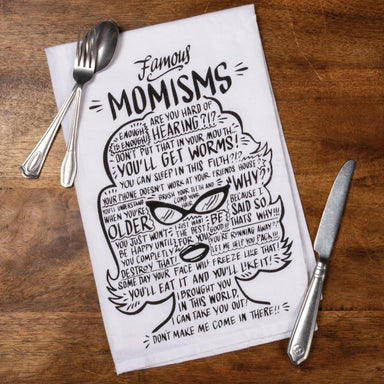 Famous
MOMISMS
ENOUGH IS ENOUGH!
ARE YOU HARD OF
HEARING?!?
DON'T PUT THAT IN YOUR MOUTH,
YOU'LL GET WORMS!
YOU CAN SLEEP IN THIS FILTH?!?
YOUR PHONE DOESN'T WORK AT YOUR FRIENDS HOUSE?
BRUSH YOUR TEETH AND COMB YOUR HAIR
WHY?
BECAUSE I
SAID SO
THATS WHY!!!
YOU'LL UNDERSTAND
WHEN YOU'RE
OLDER!
I JUST WANT
THE BEST
FOR YOU
BE
GOOD!!
YOU JUST WON'T
BE HAPPY UNTIL
YOU COMPLETELY
DESTROY THAT!
YOU'RE RUNNING AWAY??
LET ME HELP YOU PACK!!!
SOME DAY YOUR FACE WILL FREEZE LIKE THAT!
YOU'LL EAT IT AND YOU'LL LIKE IT!
I BROUGHT YOU
IN THIS WORLD,
I CAN TAKE YOU OUT!
DONT MAKE ME COME IN THERE!!